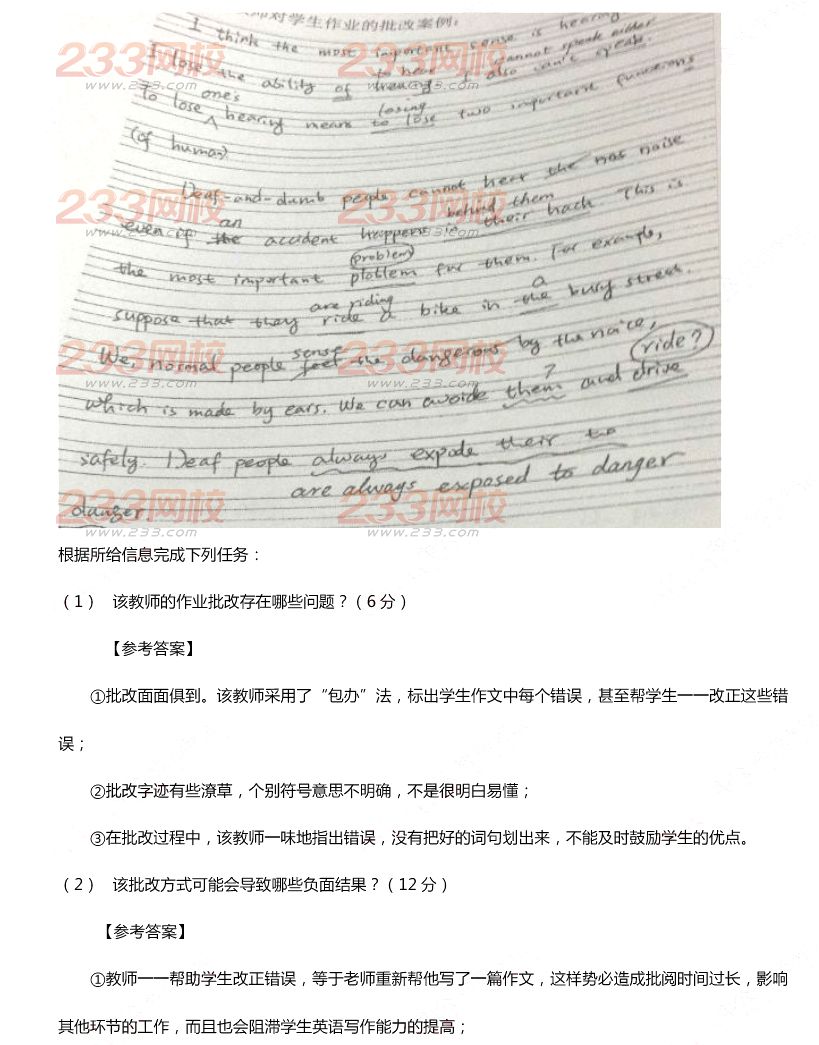 师对学生作业的批改案例:
I think the most important sense is hearing
cannot speak either
I lose the ability of hearing I also can't speak.
to hear
one's losing
To lose hearing means to lose two important functions
(of human)
Deaf-and-dumb people cannot hear the nos noise
an behind them
even if the accident happens in their back This is
(problem)
the most important plotlem for them. For example,
are riding a
suppose that they ride a bike in the busy street.
sense
We, normal people feel the dangerous by the noice,
? ride?
which is made by ears. We can avoide them and drive
safely. Deaf people always expode their to
are always exposed to danger
danger
233网校
www.233.com
233网校
www.233.com
233网校
233网校
233网校
www.233.com
233网校
www.233.com
233网校
www.233.com
233网校
www.233.com
根据所给信息完成下列任务：
（1） 该教师的作业批改存在哪些问题？（6分）
【参考答案】
①批改面面俱到。该教师采用了“包办”法，标出学生作文中每个错误，甚至帮学生一一改正这些错
误；
②批改字迹有些潦草，个别符号意思不明确，不是很明白易懂；
③在批改过程中，该教师一味地指出错误，没有把好的词句划出来，不能及时鼓励学生的优点。
（2） 该批改方式可能会导致哪些负面结果？（12分）
【参考答案】
①教师一一帮助学生改正错误，等于老师重新帮他写了一篇作文，这样势必造成批阅时间过长，影响
其他环节的工作，而且也会阻滞学生英语写作能力的提高；